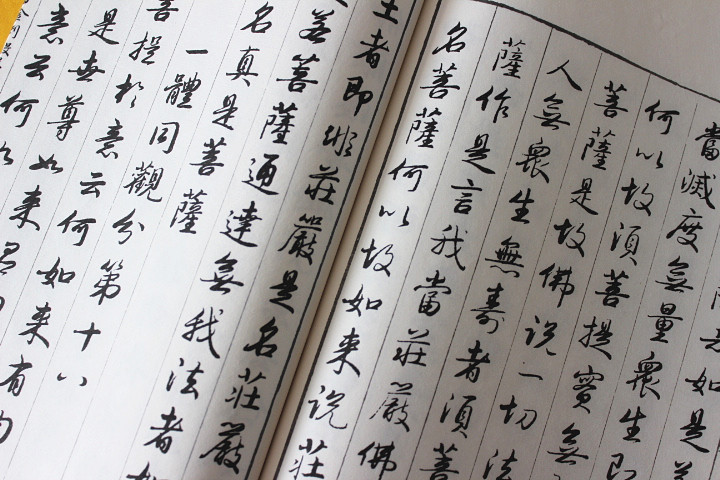 如是
當滅度無量衆生即
何以故須菩提實無
菩薩是故佛说一切法
人無衆生無壽者須菩
薩作是言我當莊嚴佛
名菩薩何以故如来说莊
土者即非莊嚴是名莊嚴
若菩薩通達無我法者如
名真是菩薩
一體同觀分第十八
菩提於意云何如来有肉
是世尊如来
意云何如